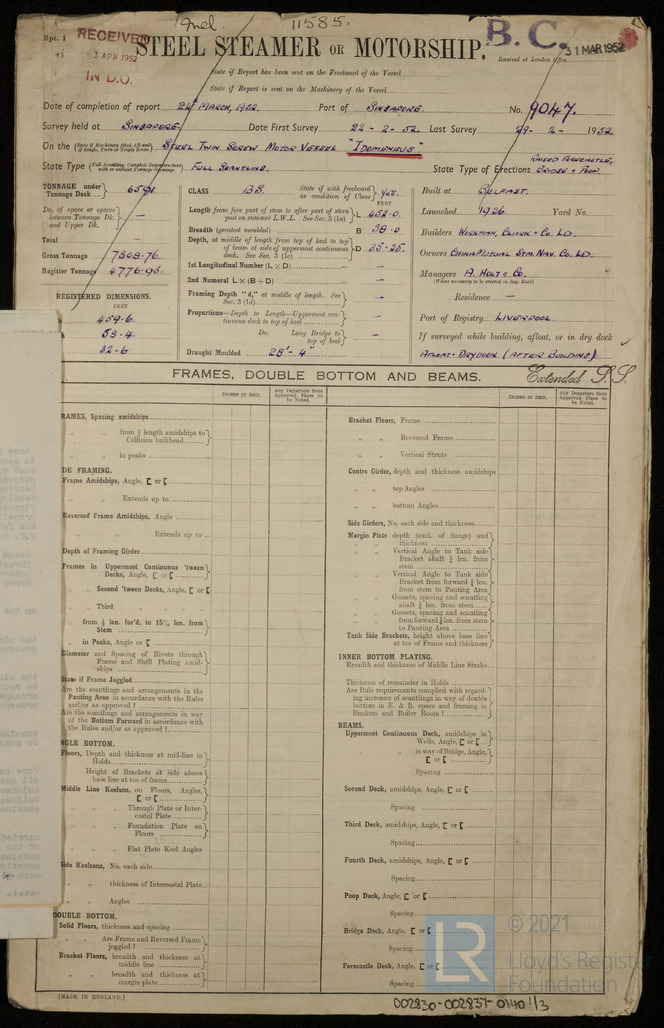 Rpt. 1
Mel.
11585.
B.C.
RECEIVED
3 APR 1952
IN D.O.
31 MAR 1952
STEEL STEAMER OR MOTORSHIP.
Received at London Office
State if Report has been sent on the Freeboard of the Vessel
State if Report is sent on the Machinery of the Vessel
Date of completion of report 24th MARCH, 1952. Port of SINGAPORE. No. 9047.
Survey held at SINGAPORE Date First Survey 22-2-52 Last Survey 29-2- 1952
On the (State if Machinery fitted Aft and if Single, Twin or Triple Screw) STEEL TWIN SCREW MOTOR VESSEL "IDOMENEUS"
State Type (Full Scantling, Complete Superstructure with or without Tonnage Openings) FULL SCANTLING. State Type of Erections RAISED FORECASTLE, BRIDGE & POOP.
TONNAGE under Tonnage Deck ... 6591
Do. of space or spaces between Tonnage Dk. and Upper Dk. —
Total —
Gross Tonnage 7398.76.
Register Tonnage 4776.95.
REGISTERED DIMENSIONS.
FEET
459.6.
58.4.
32.6
CLASS 138. State if with freeboard as condition of Class YES.
FEET
Length from fore part of stem to after part of stern post on summer L.W.L. See Sec. 3 (1a) L 452.0.
Breadth (greatest moulded) B 58.0
Depth, at middle of length from top of keel to top of beam at side of uppermost continuous deck. See Sec. 3 (1c) D 35.25.
1st Longitudinal Number (L × D) —
2nd Numeral L × (B + D) —
Framing Depth "d," at middle of length. See Sec. 3 (1d) —
Proportions—Depth to Length—Uppermost continuous deck to top of keel —
Do. Long Bridge to top of keel —
Draught Moulded 28'-4"
Built at BELFAST.
Launched 1926. Yard No.
Builders WORKMAN, CLARK & CO. LD.
Owners CHINA MUTUAL STM. NAV. CO. LD.
Managers A. HOLT & CO.
(Where necessary to be entered in Reg. Book)
Residence —
Port of Registry LIVERPOOL.
If surveyed while building, afloat, or in dry dock
AFLOAT - DRYDOCK (AFTER BUILDING)
FRAMES, DOUBLE BOTTOM AND BEAMS. Extended S.S.
INCHES IN SHIP.
Any Departure from Approved Plans to be Noted.
INCHES IN SHIP.
Any Departure from Approved Plans to be Noted.
RAMES, Spacing amidships
" " from ⅕ length amidships to Collision bulkhead
" " in peaks
DE FRAMING.
Frame Amidships, Angle, [ or [
" " Extends up to
Reversed Frame Amidships, Angle
" " Extends up to
Depth of Framing Girder
Frames in Uppermost Continuous 'tween Decks, Angle, [ or [
" Second 'tween Decks, Angle, [ or [
" Third " " "
" from ⅕ len. for'd. to 15% len. from Stem
" in Peaks, Angle or [
Diameter and Spacing of Rivets through Frame and Shell Plating amidships
State if Frame Joggled
Are the scantlings and arrangements in the Panting Area in accordance with the Rules and/or as approved ?
Are the scantlings and arrangements in way of the Bottom Forward in accordance with the Rules and/or as approved ?
NGLE BOTTOM.
Floors, Depth and thickness at mid-line in Holds
Height of Brackets at side above base line at toe of frame
Middle Line Keelson, on Floors, Angles, [ or [
" " Through Plate or Intercostal Plate
" " Foundation Plate on Floors
" " Flat Plate Keel Angles
Side Keelsons, No. each side
" " thickness of Intercostal Plate
" " Angles
DOUBLE BOTTOM.
Solid Floors, thickness and spacing
" " Are Frame and Reversed Frame joggled ?
Bracket Floors, breadth and thickness at middle line
" " breadth and thickness at margin plate
Bracket Floors, Frame
" " Reversed Frame
" " Vertical Struts
Centre Girder, depth and thickness amidships
" " top Angles
" " bottom Angles
Side Girders, No. each side and thickness
Margin Plate depth (excl. of flange) and thickness
" " Vertical Angle to Tank side Bracket abaft ¼ len. from stem
" " Vertical Angle to Tank side Bracket from forward ¼ len. from stem to Panting Area
" " Gussets, spacing and scantling abaft ¼ len. from stem
" " Gussets, spacing and scantling from forward ¼ len. from stem to Panting Area
Tank Side Brackets, height above base line at toe of Frame and thickness
INNER BOTTOM PLATING.
Breadth and thickness of Middle Line Strake
Thickness of remainder in Holds
Are Rule requirements complied with regarding increases of scantlings in way of double bottom in E. & B. space and framing in Bunkers and Boiler Room ?
BEAMS.
Uppermost Continuous Deck, amidships in Wells, Angle, [ or [
" " in way of Bridge, Angle, [ or [
Spacing
Second Deck, amidships, Angle, [ or [
Spacing
Third Deck, amidships, Angle, [ or [
Spacing
Fourth Deck, amidships, Angle, [ or [
Spacing
Poop Deck, Angle, [ or [
Spacing
Bridge Deck, Angle, [ or [
Spacing
Forecastle Deck, Angle, [ or [
Spacing
(MADE IN ENGLAND.)
002830-002837-0140 1/3
LR
© 2021
Lloyd's Register
Foundation